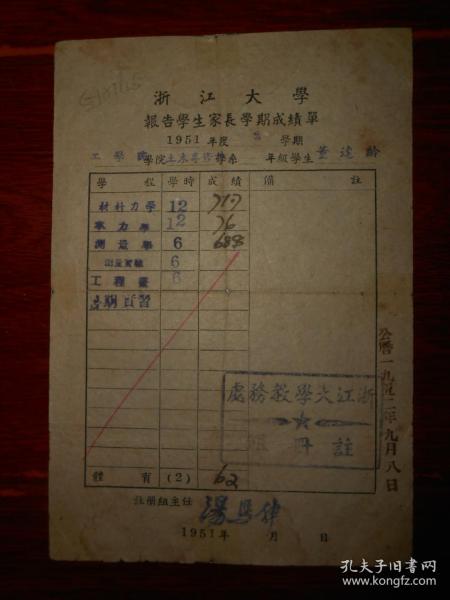 浙江大學
報告學生家長學期成績單
1951 年度 學期
工學院 學院土木專修科 學系 年級學生 黃達齡
學程 學時 成績 備註
材料力學 12 71.7
水力學 12 76
測量學 6 68.8
測量實驗 6
工程畫 6
暑期實習
體育 (2) 62
浙江大學教務處
註冊組
公曆一九五二年九月八日
註册組主任
1951年 月 日
孔夫子旧书网
www.kongfz.com